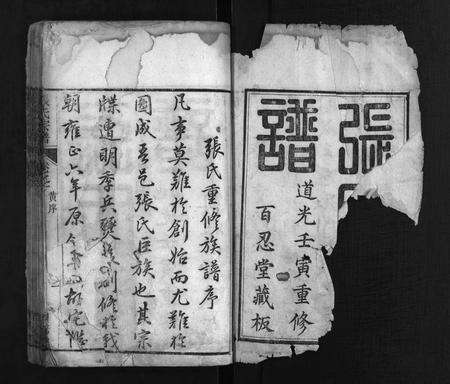 張
譜
道光壬寅重修
百忍堂藏板
張氏重修族譜序
凡事莫難於創始而尤難於
圖成吾邑張氏巨族也其宗
牒遭明季兵燹後創修於我
朝雍正六年原
黃序